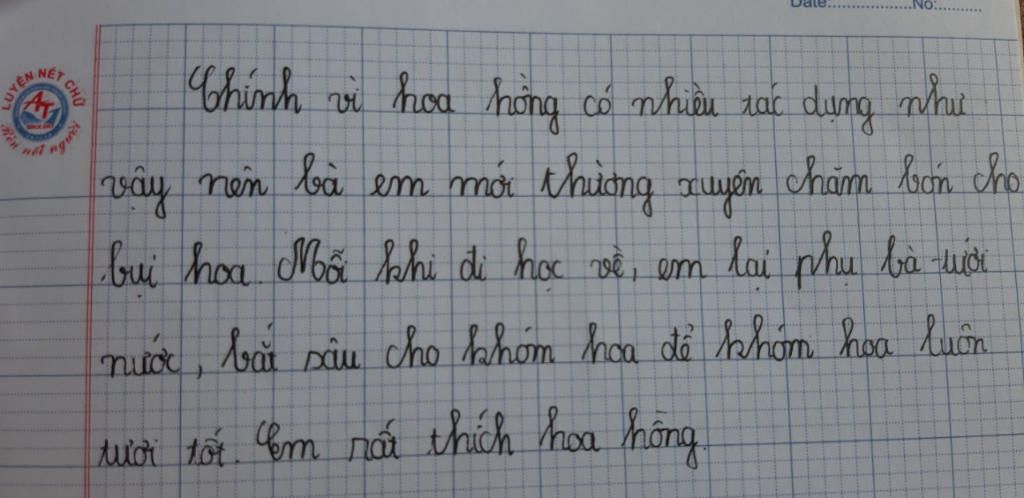 Date:................No:..........
LUYỆN NÉT CHỮ
AT
Rèn nết người
Chính vì hoa hồng có nhiều tác dụng như
vậy nên bà em mới thường xuyên chăm bón cho
bụi hoa. Mỗi khi đi học về, em lại phụ bà tưới
nước, bắt sâu cho khóm hoa để khóm hoa luôn
tươi tốt. Em rất thích hoa hồng.